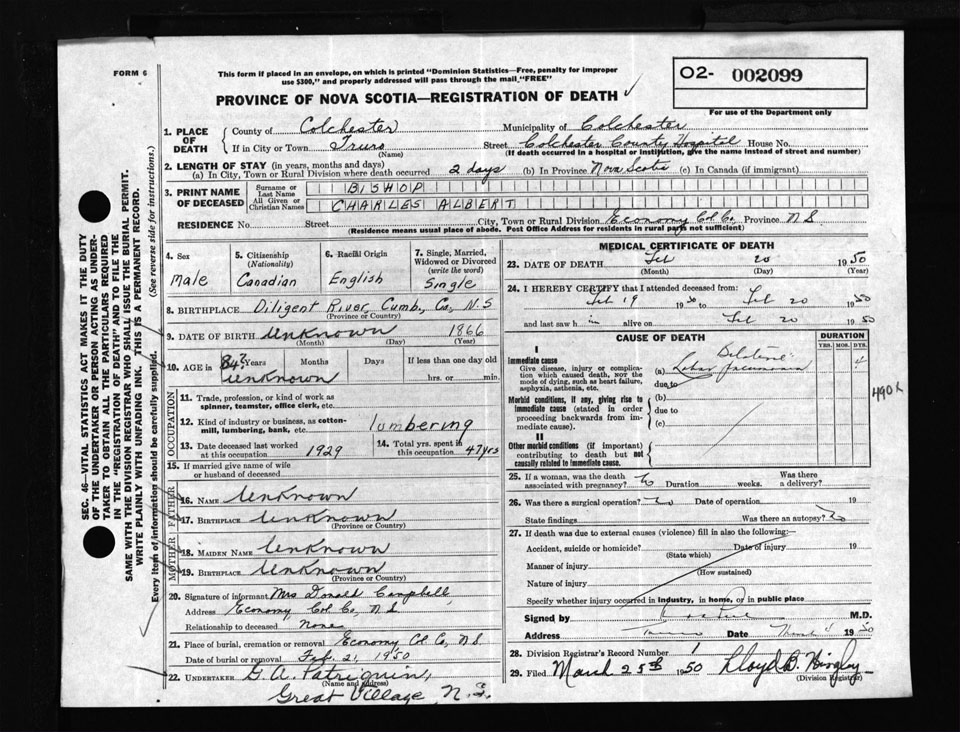 FORM 6
This form if placed in an envelope, on which is printed "Dominion Statistics—Free, penalty for improper
use $300," and properly addressed will pass through the mail, "FREE"
O2- 002099
PROVINCE OF NOVA SCOTIA—REGISTRATION OF DEATH
For use of the Department only
1. PLACE OF DEATH
County of Colchester Municipality of Colchester
If in City or Town Truro (Name) Street Colchester County Hospital House No.
(If death occurred in a hospital or institution, give the name instead of street and number)
2. LENGTH OF STAY (in years, months and days)
(a) In City, Town or Rural Division where death occurred 2 days (b) In Province Nova Scotia (c) In Canada (if immigrant)
3. PRINT NAME OF DECEASED
Surname or Last Name BISHOP
All Given or Christian Names CHARLES ALBERT
RESIDENCE No. Street City, Town or Rural Division Economy Col. Co. Province N S
(Residence means usual place of abode. Post Office Address for residents in rural parts not sufficient)
4. Sex Male
5. Citizenship (Nationality) Canadian
6. Racial Origin English
7. Single, Married, Widowed or Divorced (write the word) Single
8. BIRTHPLACE Diligent River Cumb. Co. N.S
(Province or Country)
9. DATE OF BIRTH Unknown 1866
(Month) (Day) (Year)
10. AGE in Years Months Days If less than one day old
Unknown hrs. or min.
OCCUPATION
11. Trade, profession, or kind of work as
spinner, teamster, office clerk, etc.
12. Kind of industry or business, as cotton-
mill, lumbering, bank, etc. lumbering
13. Date deceased last worked at this occupation 1929
14. Total yrs. spent in this occupation 47 yrs
15. If married give name of wife
or husband of deceased
FATHER
16. NAME Unknown
17. BIRTHPLACE Unknown
(Province or Country)
MOTHER
18. MAIDEN NAME Unknown
19. BIRTHPLACE Unknown
(Province or Country)
20. Signature of informant Mrs Donald Campbell
Address Economy Col. Co. N S
Relationship to deceased None
21. Place of burial, cremation or removal Economy Col. Co. N.S.
Date of burial or removal Feb. 21, 1950
22. UNDERTAKER G. A. Patriquin,
(Name and address)
Great Village, N.S.
MEDICAL CERTIFICATE OF DEATH
23. DATE OF DEATH Feb 20 1950
(Month) (Day) (Year)
24. I HEREBY CERTIFY that I attended deceased from:
Feb 19 1950 to Feb 20 1950
and last saw him alive on Feb 20 1950
CAUSE OF DEATH
DURATION
YRS. MOS. DYS.
I
Immediate cause
Give disease, injury or complica-
tion which caused death, NOT the
mode of dying, such as heart failure,
asphyxia, asthenia, etc.
(a) Lobar Pneumonia
due to
Morbid conditions, if any, giving rise to
immediate cause (stated in order
proceeding backwards from im-
mediate cause).
(b)
due to
(c)
II
Other morbid conditions (if important)
contributing to death but not
causally related to immediate cause.
25. If a woman, was the death associated with pregnancy? Duration weeks. Was there a delivery?
26. Was there a surgical operation? No Date of operation 19
State findings Was there an autopsy? No
27. If death was due to external causes (violence) fill in also the following:
Accident, suicide or homicide? Date of injury 19
(State which)
Manner of injury
(How sustained)
Nature of injury
Specify whether injury occurred in industry, in home, or in public place
Signed by M.D.
Address Truro Date March 1950
28. Division Registrar's Record Number 1
29. Filed March 25th 1950 Lloyd B.
(Division Registrar)
SEC. 46—VITAL STATISTICS ACT MAKES IT THE DUTY
OF THE UNDERTAKER OR PERSON ACTING AS UNDER-
TAKER TO OBTAIN ALL THE PARTICULARS REQUIRED
IN THE "REGISTRATION OF DEATH" AND TO FILE THE
SAME WITH THE DIVISION REGISTRAR WHO SHALL ISSUE THE BURIAL PERMIT.
WRITE PLAINLY WITH UNFADING INK. THIS IS A PERMANENT RECORD.
Every item of information should be carefully supplied. (See reverse side for instructions.)